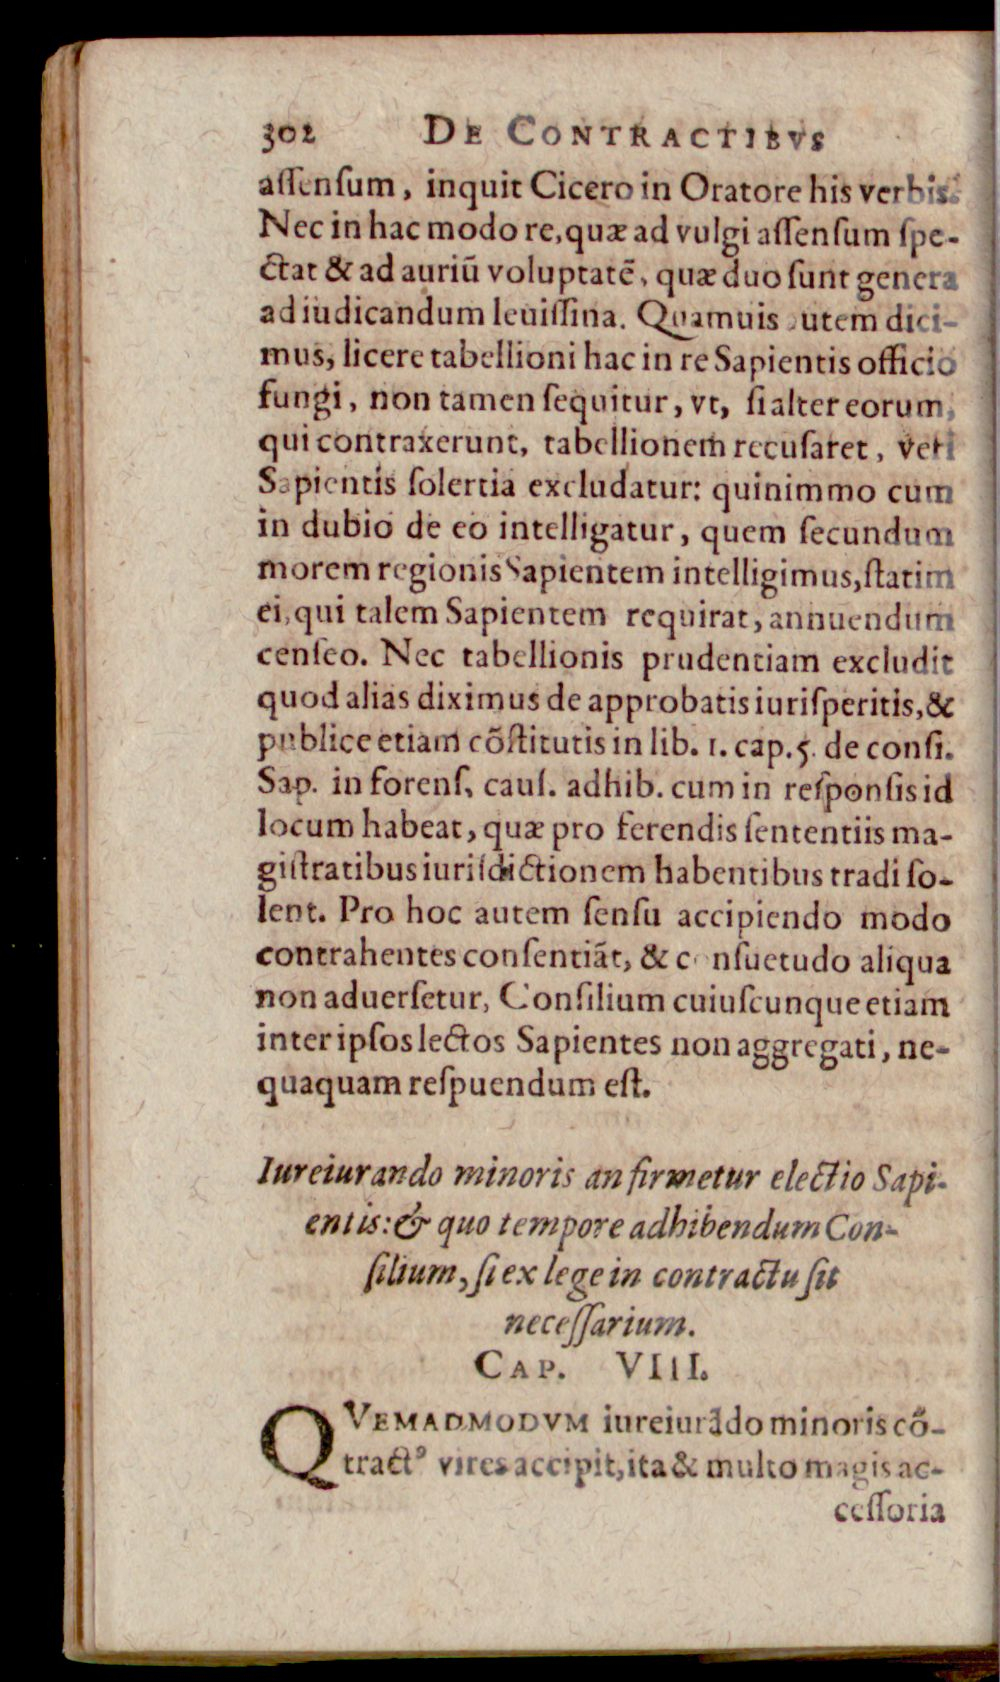 302 DE CONTRACTIBVS
aſſenſum, inquit Cicero in Oratore his verbis.
Nec in hac modo re, quæ ad vulgi aſſenſum ſpe-
ctat & ad auriū voluptatē, quæ duo ſunt genera
ad iudicandum leuiſſina. Quamuis autem dici-
mus, licere tabellioni hac in re Sapientis officio
fungi, non tamen ſequitur, vt, ſi alter eorum,
qui contraxerunt, tabellionem recuſaret, veri
Sapientis ſolertia excludatur: quinimmo cum
in dubio de eo intelligatur, quem ſecundum
morem regionis Sapientem intelligimus, ſtatim
ei, qui talem Sapientem requirat, annuendum
cenſeo. Nec tabellionis prudentiam excludit
quod alias diximus de approbatis iuriſperitis, &
publice etiam cōſtitutis in lib. 1. cap. 5. de conſi.
Sap. in forenſ. cauſ. adhib. cum in reſponſis id
locum habeat, quæ pro ferendis ſententiis ma-
giſtratibus iuriſdictionem habentibus tradi ſo-
lent. Pro hoc autem ſenſu accipiendo modo
contrahentes conſentiāt, & conſuetudo aliqua
non aduerſetur, Conſilium cuiuſcunque etiam
inter ipſos lectos Sapientes non aggregati, ne-
quaquam reſpuendum eſt.
Iureiurando minoris an firmetur electio Sapi-
entis: & quo tempore adhibendum Con-
ſilium, ſi ex lege in contractu ſit
neceſſarium.
CAP. VIII.
QVEMADMODVM iureiurādo minoris cō-
tractꝰ vires accipit, ita & multo magis ac-
ceſſoria